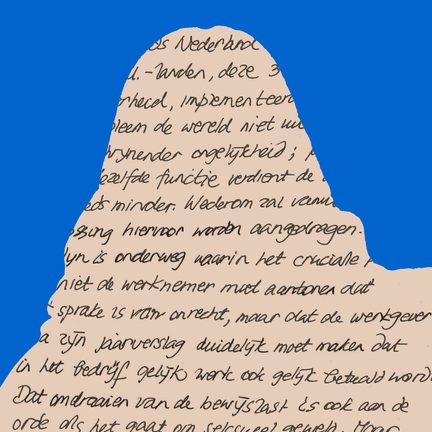 ds Nederland
U.-landen, deze 3
rheid, implementeerd
bleem de wereld niet
hrijnender ongelijkheid;
dezelfde functie verdient de
eds minder. Wederom zal
ossing hiervoor worden aangedragen.
ijn is onderweg waarin het cruciale
niet de werknemer moet aantonen dat
sprake is van onrecht, maar dat de werkgever
a zijn jaarverslag duidelijk moet maken dat
in het bedrijf gelijk werk ook gelijk betaald word
Dat omdraaien van de bewijslast is ook aan de
orde als het gaat om seksueel geweld. Maar